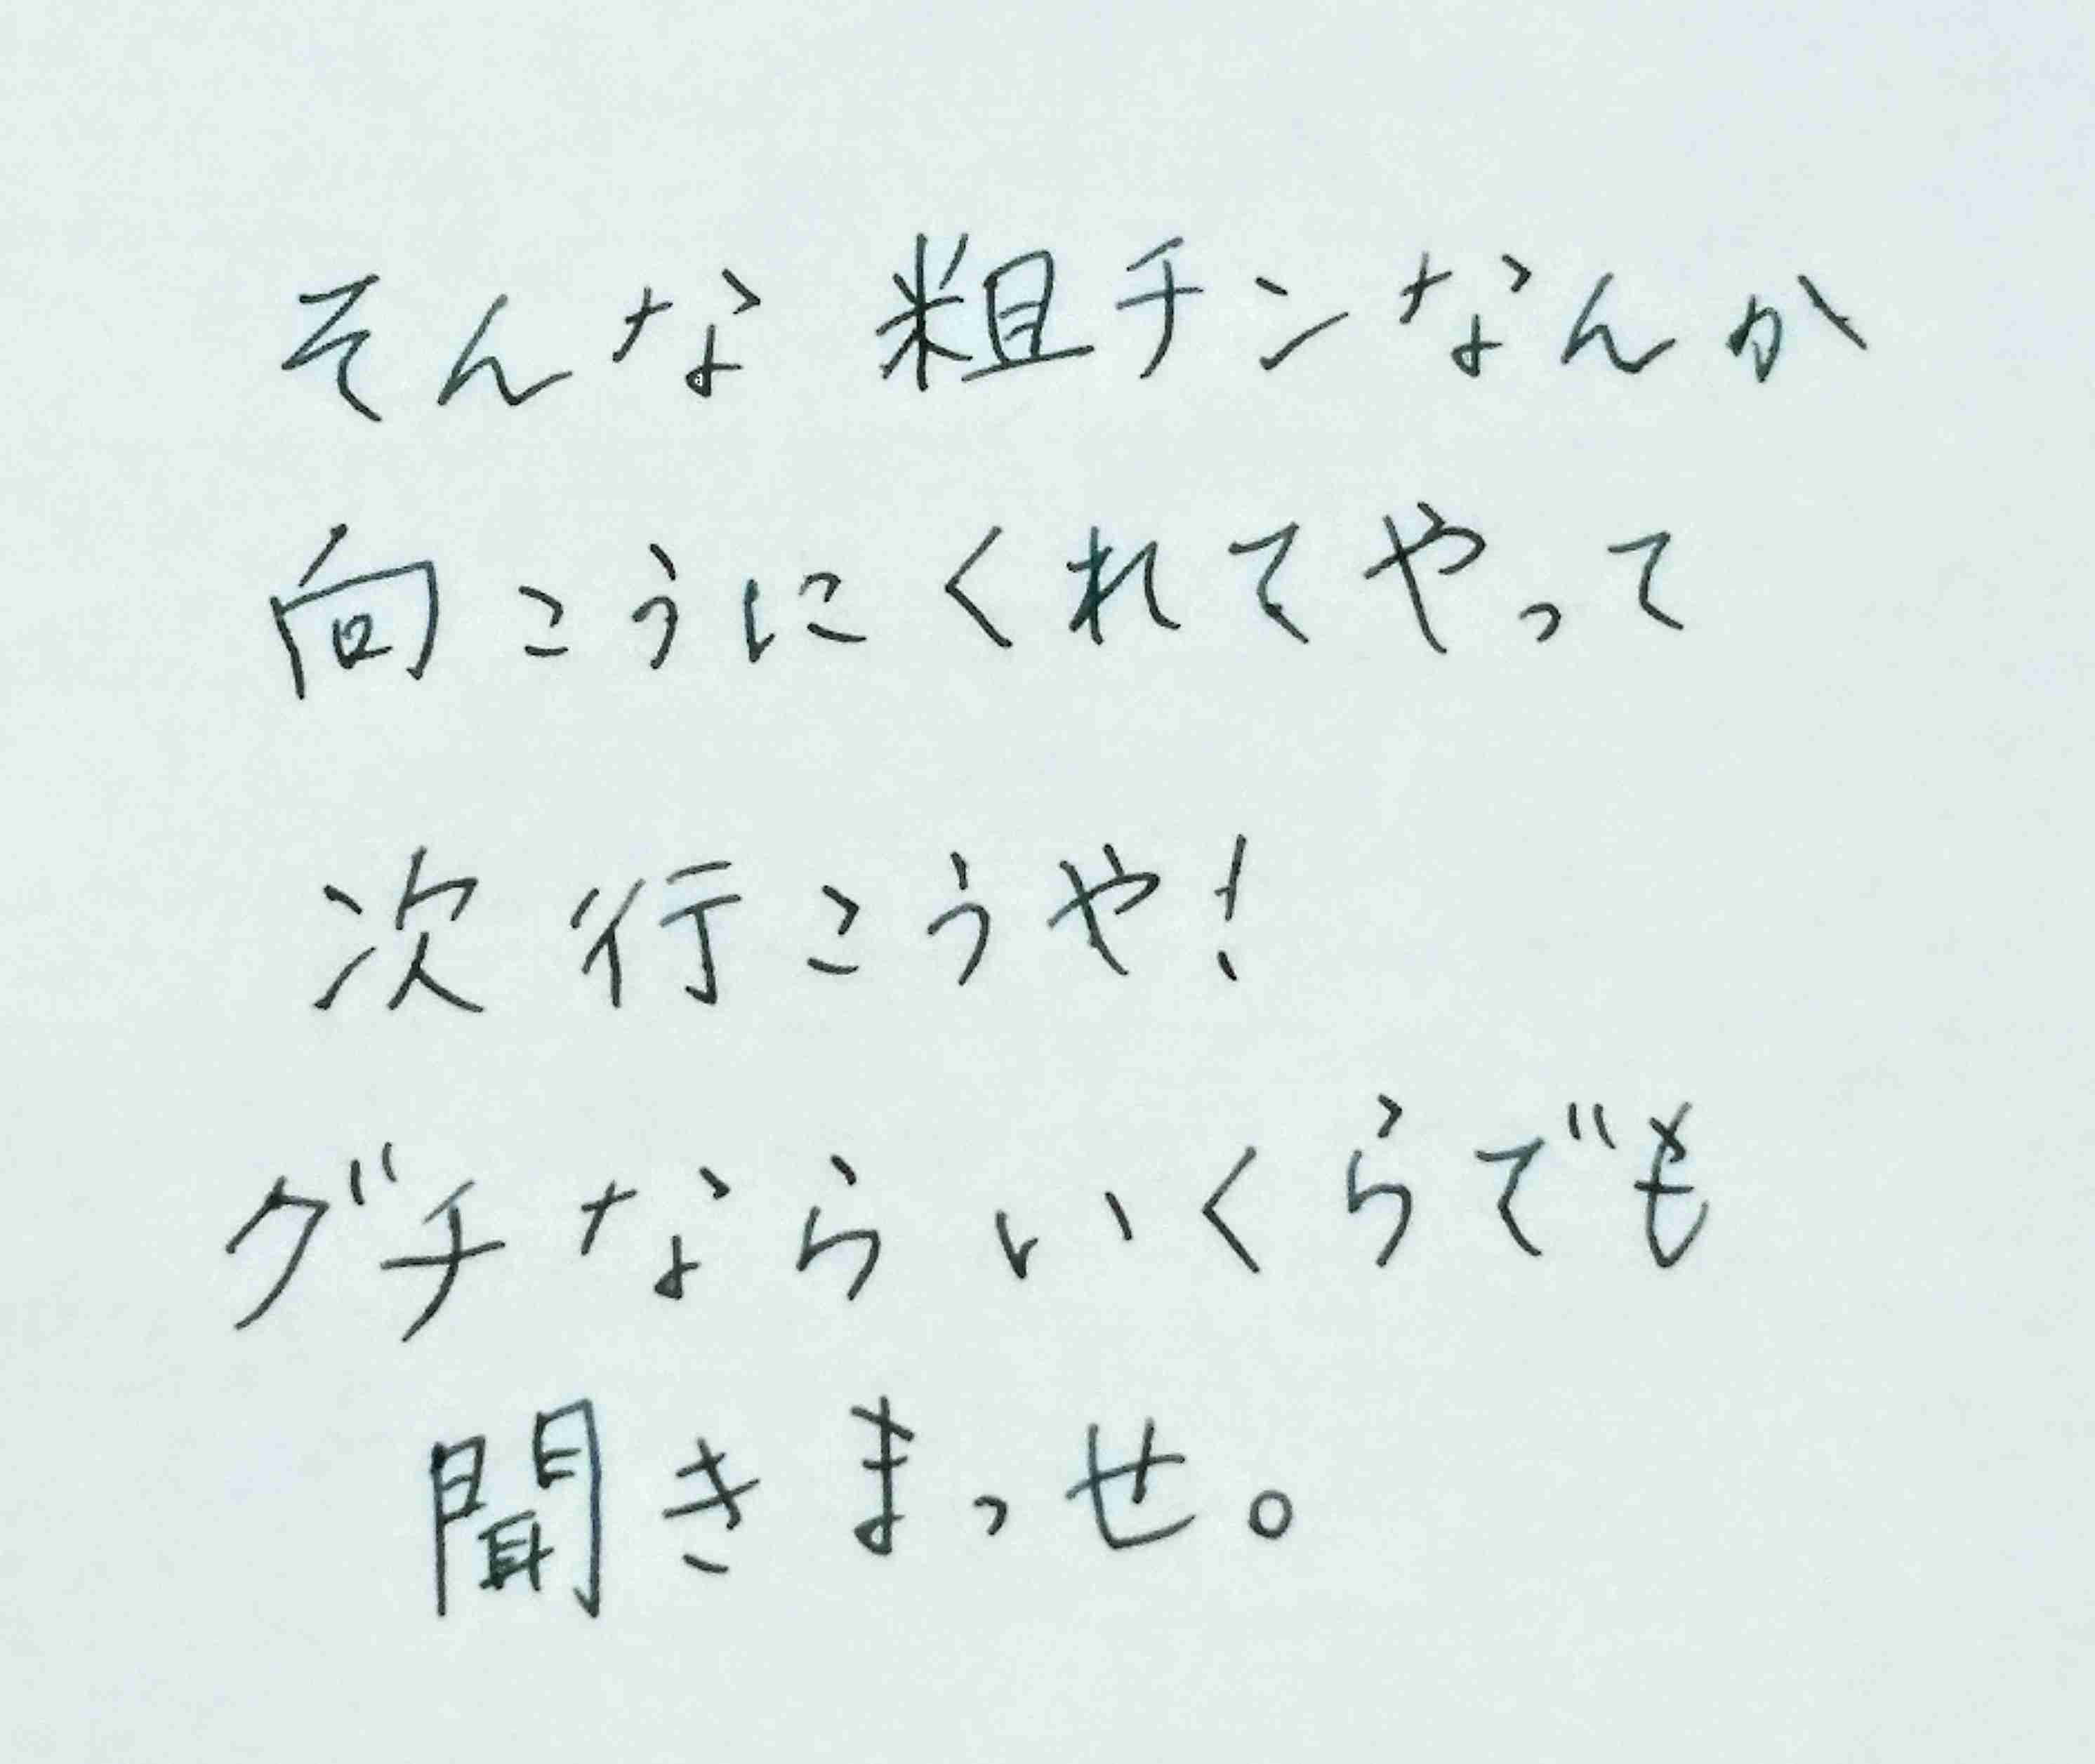 そんな粗チンなんか
向こうにくれてやって
次行こうや!
グチならいくらでも
聞きまっせ。